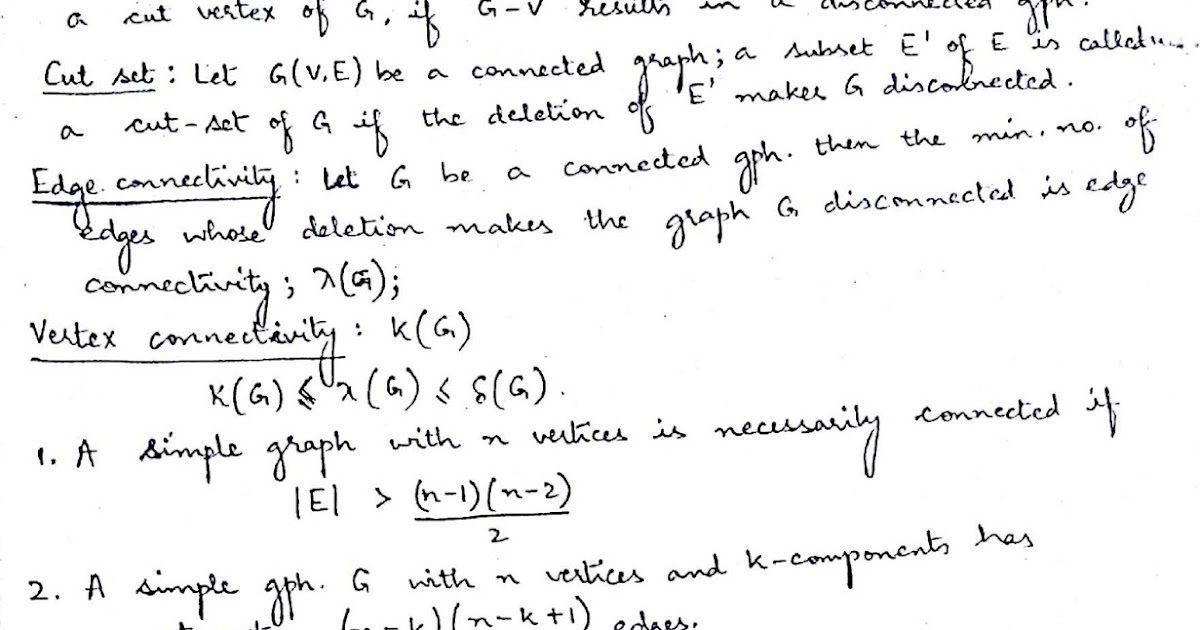 a cut vertex of G, if G-V results in a disconnected gph.
Cut set : Let G(V,E) be a connected graph; a subset E' of E is called
a cut-set of G if the deletion of E' makes G disconnected.
Edge connectivity : Let G be a connected gph. then the min. no. of
edges whose deletion makes the graph G disconnected is edge
connectivity ; λ(G);
Vertex connectivity : K(G)
K(G) ≤ λ(G) ≤ δ(G).
1. A simple graph with n vertices is necessarily connected if
|E| > (n-1)(n-2)
2
2. A simple gph. G with n vertices and k-components has
(n-k)(n-k+1) edges.